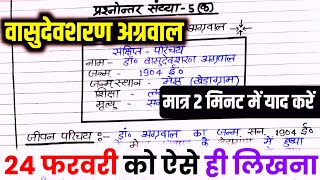 प्रश्नोत्तर संख्या - 5 (क)
वासुदेवशरण अग्रवाल
अग्रवाल
संक्षिप्त - परिचय
नाम - डॉ० वासुदेवशरण अग्रवाल
जन्म - 1904 ई०
जन्म स्थान - मेरठ (खेड़ाग्राम)
शिक्षा -
मृत्यु - सन्
मात्र 2 मिनट में याद करें
जीवन परिचय :- डॉ० अग्रवाल का जन्म सन् 1904 ई०
में हुआ
24 फरवरी को ऐसे ही लिखना